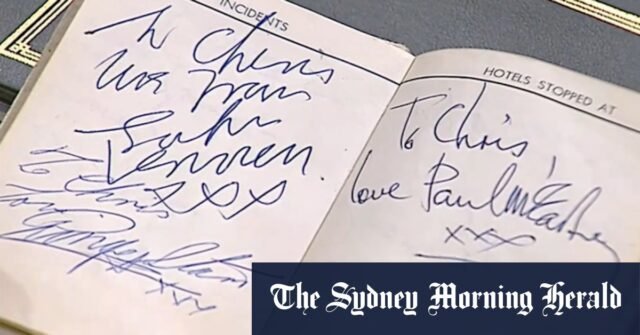 INCIDENTS
To Chris
love from
John
Lennon.
XXX
To Chris
love
Ringo Starr
XXX
HOTELS STOPPED AT
To Chris,
love Paul McCartney
XXX
The Sydney Morning Herald